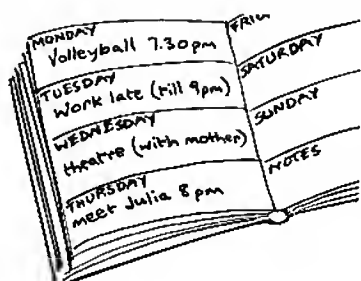 MONDAY
Volleyball 7.30pm
TUESDAY
Work late (till 9pm)
WEDNESDAY
theatre (with mother)
THURSDAY
meet Julia 8pm
FRI
SATURDAY
SUNDAY
NOTES